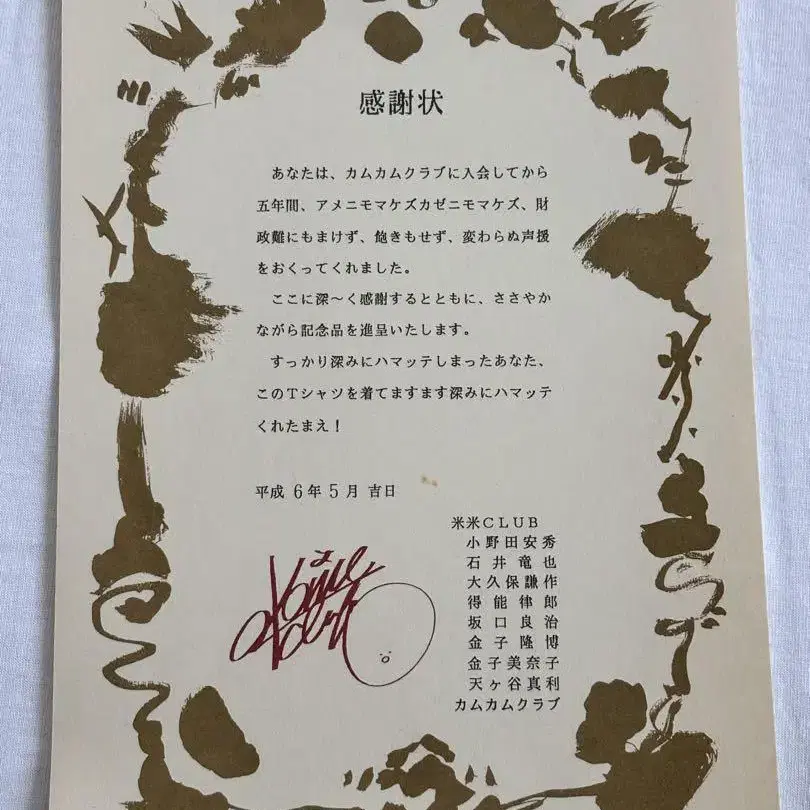 感謝状
あなたは、カムカムクラブに入会してから
五年間、アメニモマケズカゼニモマケズ、財
政難にもまけず、飽きもせず、変わらぬ声援
をおくってくれました。
ここに深〜く感謝するとともに、ささやか
ながら記念品を進呈いたします。
すっかり深みにハマッテしまったあなた、
このTシャツを着てますます深みにハマッテ
くれたまえ！
平成6年5月吉日
米米CLUB
小野田安秀
石井竜也
大久保謙作
得能律郎
坂口良治
金子隆博
金子美奈子
天ヶ谷真利
カムカムクラブ